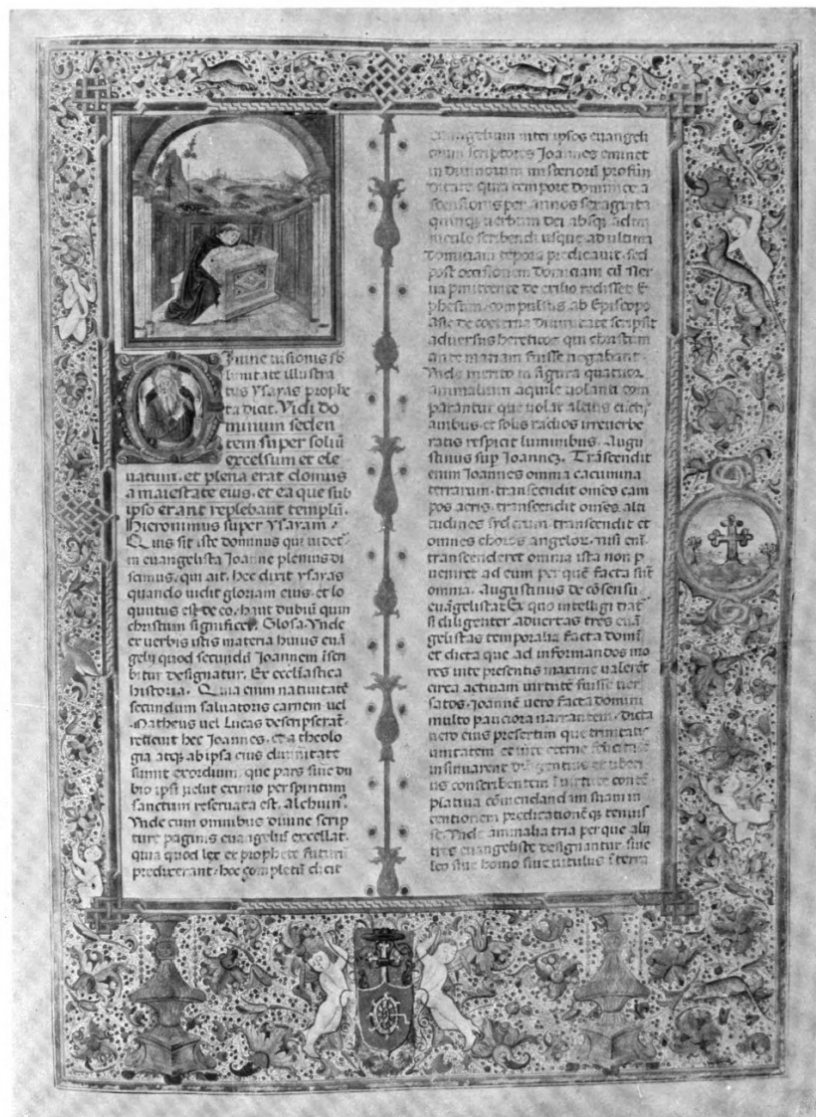 Iuine uisionis sb
limitate illustra
tus Ysayas prophe
ta dicit. Vidi do
minum seden
tem super soliũ
excelsum et ele
uatum. et plena erat domus
a maiestate eius. et ea que sub
ipso erant replebant templũ.
Hieronimus super Ysayam.
Quis sit iste dominus qui uidet~
in euangelista Ioanne plenius di
scimus. qui ait. hec dixit ysayas
quando uidit gloriam eius. et lo
quutus est de eo. haut dubiũ quin
christum significet. Glosa. Vnde
ex uerbis istis materia huius euã
gelij quod secundũ Ioannem ĩscri
bitur designatur. Ex eccl̃iastica
historia. Quia enim natiuitatẽ
secundum saluatoris carnem uel
Matheus uel Lucas descripserat~
reticuit hec Ioannes. et a theolo
gia atqꝫ ab ipsa eius diuinitate
sumit exordium. que pars sine du
bio ipsi uelut eximio per spiritum
sanctum reseruata est. Alchuin~
Vnde cum omnibus diuine scrip
ture paginis euangelius excellat.
quia quod lex et prophete futuri
predixerant hoc completũ dicit
euangelium inter ipsos euangeli
orum scriptores Ioannes eminet
in diuinorum misteriorũ profũn
ditate qui a tempore dominice a
scensionis per annos sexaginta
quinqꝫ uerbum dei absqꝫ admi
niculo scribendi usque ad ultima
Domiciani tẽpora predicauit. sed
post occisionem Domiciani cũ Ner
ua permittente de exilio redisset E
phesum. compulsus ab Episcopo
asie de coeterna diuinitate scripsit
aduersus hereticos qui christum
ante mariam fuisse negabant.
Vnde merito in figura quatuor
animalium aquile uolanti com
paratur que uolat altius cunctis
auibus et solis radios irreuerbe
ratis respicit luminibus. Augu
stinus sup Ioannez. Trãscendit
enim Ioannes omnia cacumina
terrarum. transcendit omẽs cam
pos aeris. transcendit omẽs alti
tudines syderum transcendit et
omnes choros angelor. nisi eni~
transcenderet omnia ista non p
ueniret ad eum per quẽ facta sũt
omnia. Augustinus de cõsensu
euãgelistar. Ex quo intelligi dat~
si diligenter aduertas tres euã
gelistas temporalia facta domĩ
et dicta que ad informandos mo
res uite presentis maxime ualerẽt
circa actiuam uirtutẽ fuisse uer
satos. Ioannẽ uero facta domini
multo pauciora narrantem. dicta
uero eius presertim que trinitatis
unitatem et uite eterne felicitatẽ
insinuarent diligentius et uberi
us conscribentem in uirtute contẽ
platiua cõmendandam suam in
tentionem predicationẽqꝫ tenuis
se. Vnde animalia tria per que alij
tres euangeliste designantur. siue
leo siue homo siue uitulus ĩ terra